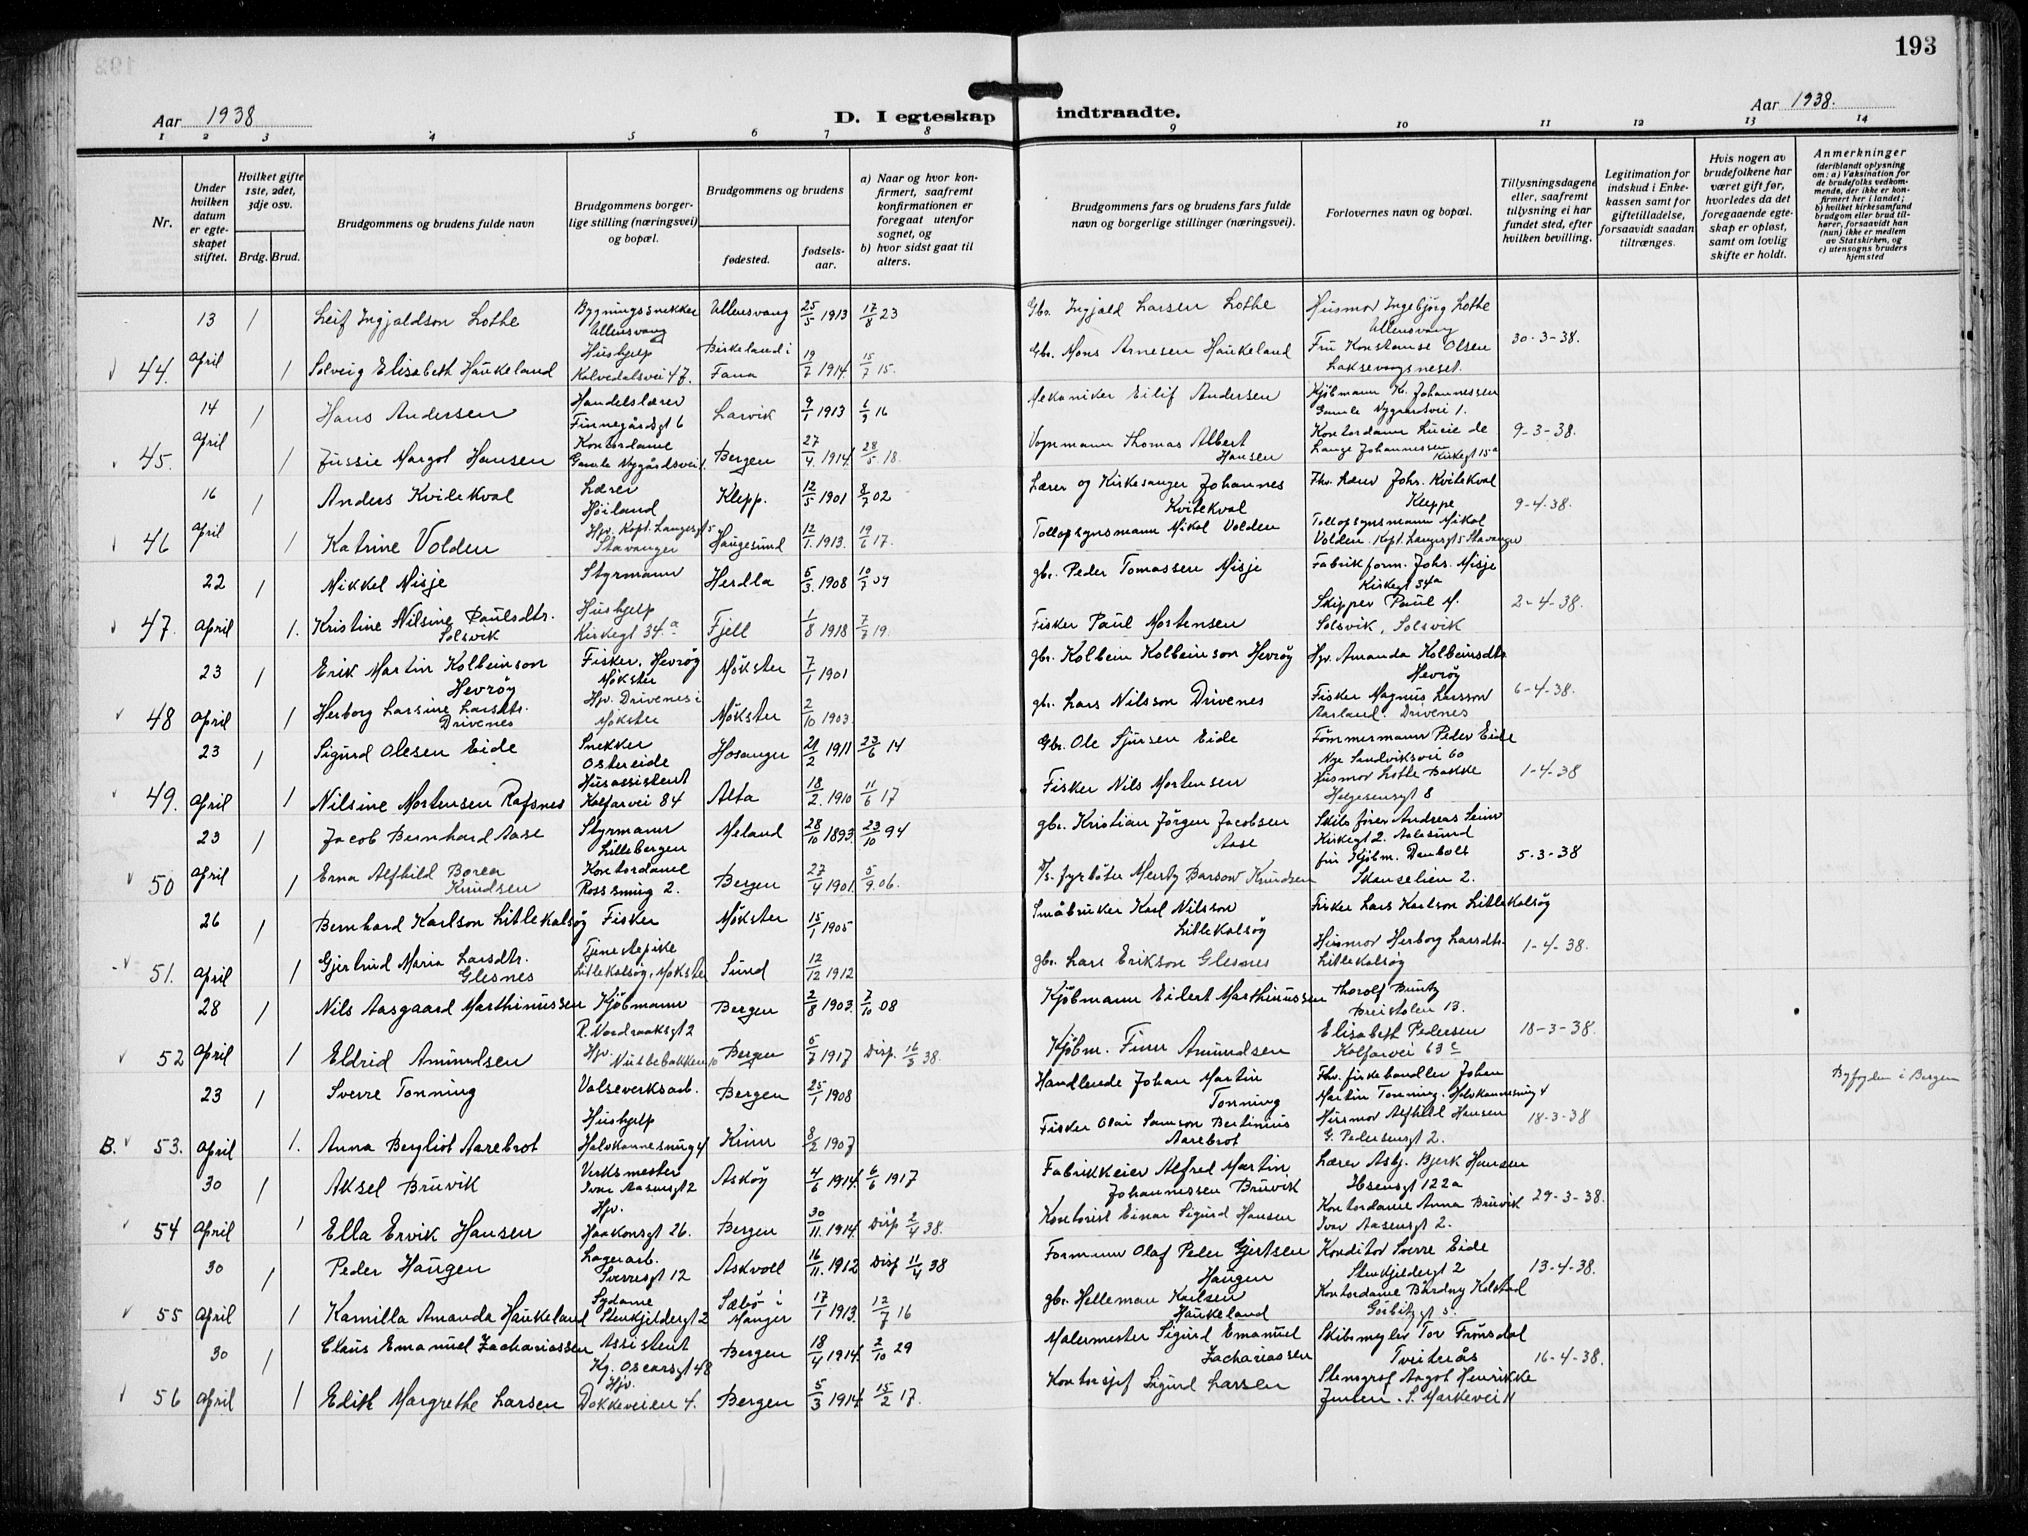 193
Aar 1938
D. I egteskap indtraadte.
Aar 1938.
1 2 3 4 5 6 7 8 9 10 11 12 13 14
Nr.
Under hvilken datum er egteskapet stiftet.
Hvilket gifte 1ste, 2det, 3dje osv.
Brdg. Brud.
Brudgommens og brudens fulde navn
Brudgommens borgerlige stilling (næringsvei) og bopæl.
Brudgommens og brudens
fødested.
fødselsaar.
a) Naar og hvor konfirmert, saafremt konfirmationen er foregaat utenfor sognet, og
b) hvor sidst gaat til alters.
Brudgommens fars og brudens fars fulde navn og borgerlige stillinger (næringsvei).
Forlovernes navn og bopæl.
Tillysningsdagene eller, saafremt tillysning ei har fundet sted, efter hvilken bevilling.
Legitimation for indskud i Enkekassen samt for giftetilladelse, forsaavidt saadan tiltrænges.
Hvis nogen av brudefolkene har været gift før, hvorledes da det foregaaende egteskap er opløst, samt om lovlig skifte er holdt.
Anmerkninger (deriblandt oplysning om: a) Vaksination for de brudefolks vedkommende, der ikke er konfirmert her i landet; b) hvilket kirkesamfund brudgom eller brud tilhører, forsaavidt han (hun) ikke er medlem av Statskirken, og c) utensogns bruders hjemsted
13 1 Leif Ingjaldson Lothe Bygningssnekker Ullensvang Ullensvang 25/5 1913 17/8 23 Gbr. Ingjald Larsen Lothe Husmor Ingebjørg Lothe Ullensvang
44. April 1 Solveig Elisabeth Haukeland Hushjelp Kalvedalsvei 47. Birkeland i Fana 19/7 1914 15/7 15. Gbr. Mons Arnesen Haukeland Fru Konstanse Olsen Laksevågsneset. 30-3-38.
14 1 Hans Andersen Handelslærer Finnegårdsgt 6 Larvik 9/1 1913 6/9 16 Mekaniker Eilif Andersen Kjøbmann K. Johannessen Gamle Nygaardsvei 1.
45. April 1 Jussie Margot Hansen Kontordame Gamle Nygårdsvei 1. Bergen 27/4 1914 28/5 18. Vognmann Thomas Albert Hansen Kontordame Lucie de Lange Johannessen Kirkegt 15a 9-3-38.
16 1 Anders Kvitekval Lærer Høiland Klepp. 12/5 1901 8/7 02 Lærer og Kirkesanger Johannes Kvitekval Fhv. Lærer Johs. Kvitekval Kleppe
46 April 1 Katrine Volden Hjv. Kapt. Langesgt 5 Stavanger Haugesund 12/1 1913. 19/6 17. Tollopsynsmann Mikal Volden Tollopsynsmann Mikal Volden. Kapt. Langesgt 5 Stavanger 9-4-38.
22 1 Mikkel Misje Styrmann Herdla 5/3 1908 10/7 09 gbr. Peder Tomassen Misje Fabrikform. Johs. Misje Kirkegt 34a
47. April 1. Kristine Nilsine Paulsdtr. Solsvik Hushjelp Kirkegt 34a Fjell 1/8 1918 7/7 19. Fisker Paul Mortensen Skipper Paul M. Solsvik, Solsvik 2-4-38.
23 1 Erik Martin Kolbeinson Hevrøy Fisker, Hevrøy Møkster Møkster 7/1 1901 gbr. Kolbein Kolbeinson Hevrøy Hjv. Amanda Kolbeinsdtr Hevrøy
48 April 1 Herborg Lassine Larsdtr. Drivenes Hjv. Drivenes i Møkster Møkster 2/10 1903. gbr. Lars Nilsson Drivenes Fisker Magnus Larsson Aarland. Drivenes 6-4-38.
23 1 Sigurd Olesen Eide Snekker Ostereide Hosanger 21/2 1911 23/6 14 Gbr. Ole Sjursen Eide Tømmermann Peder Eide Nye Sandviksvei 60
49. April 1 Nilsine Mortensen Rafsnes Husassistent Kalfarvei 84 Alta 18/2. 1910 11/6 17 Fisker Nils Mortensen Husmor Lotte Bakke Helgesensgt 8 1-4-38
23 1 Jacob Bernhard Aase Styrmann Lillebergen Meland 28/10 1893 23/10 94 gbr. Kristian Jørgen Jacobsen Aase Skibsfører Andreas Seim Kirkegt 2. Aalesund
50 April 1 Erna Alfhild Borea Knudsen Kontordame Rosesmug 2. Bergen 27/4 1901. 5/9 06. Fyrbøter Knudsen fru Kjøbm. Danbolt Skanselien 2. 5-3-38
26 1 Bernhard Karlson Littlekalsøy Fisker Møkster 15/1 1905 Småbruker Karl Nilsson Littlekalsøy Fisker Lars Karlson Littlekalsøy
51. April 1 Gjertrud Maria Larsdtr. Glesnes Tjenestepike Littlekalsøy, Møkster Sund 12/12 1912 gbr. Lars Erikson Glesnes Husmor Herborg Larsdtr. Littlekalsøy 1-4-38.
28 1 Nils Aasgaard Marthinussen Kjøbmann R. Nordraaksgt 2 Bergen 2/8 1903. 7/10 08 Kjøbmann Eidert Marthinussen Thorolf Buntz Breistølen 13.
52 April 1 Eldrid Amundsen Hjv. Nubbebakken 10 Bergen 5/7 1917 Disp. 16/3 38. Kjøbm. Finn Amundsen Elisabeth Pedersen Kalfarvei 63c 18-3-38.
23 1 Sverre Tonning Valseverksarb. Bergen 25/1 1908 Handlende Johan Martin Tonning Fhv. fiskehandler Johan Martin Tonning. Holvkannesmug 4 Byfogden i Bergen
B. 53. April 1. Anna Bergliot Aarebrot Hushjelp Holvkannesmug 4 Kinn 8/2 1907 Fisker Olai Samson Bertinius Aarebrot Husmor Alfhild Hansen G. Pedersensgt 2. 18-3-38
30 1 Aksel Bruvik Verksmester Ivar Aasensgt 2 Askøy 4/6 1914. 6/6 1917 Fabrikkeier Alfred Martin Johannessen Bruvik Lærer Asbj. Bjerk Hansen Ibsensgt 122a
54 April 1 Ella Ervik Hansen Hjv. Haakonsgt 26. Bergen 30/11. 1914. Disp 2/4 38. Kontorist Einar Sigurd Hansen Kontordame Anna Bruvik Ivar Aasensgt 2. 29-3-38.
30 1 Peder Haugen Lagerarb. Sverresgt 12 Askvoll 16/11. 1912 Disp 11/4 38 Formann Olaf Peder Gjertsen Haugen Konditor Sverre Eide Stenkjeldergt 2
55 April 1 Kamilla Amanda Haukeland Sydame Stenkjeldergt 2 Sæbø i Manger 17/1 1913. 12/7 16 gbr. Helleman Karlsen Haukeland Kontordame Bårdny Kolstad Gørbitzgt 5. 13-4-38.
30 1 Claus Emanuel Zachariassen Assistent Kg. Oscarsgt 48 Bergen 18/4 1914. 2/10 29 Malermester Sigurd Emanuel Zachariassen Skibsmegler Tor Frønsdal Tveiterås
56 April 1 Edith Margrethe Larsen Hjv. Dokkeveien 4. Bergen 5/3 1914 15/2 17. Kontorsjef Sigurd Larsen Stenograf Aagot Henrikke Jensen. S. Markevei 11 16-4-38.